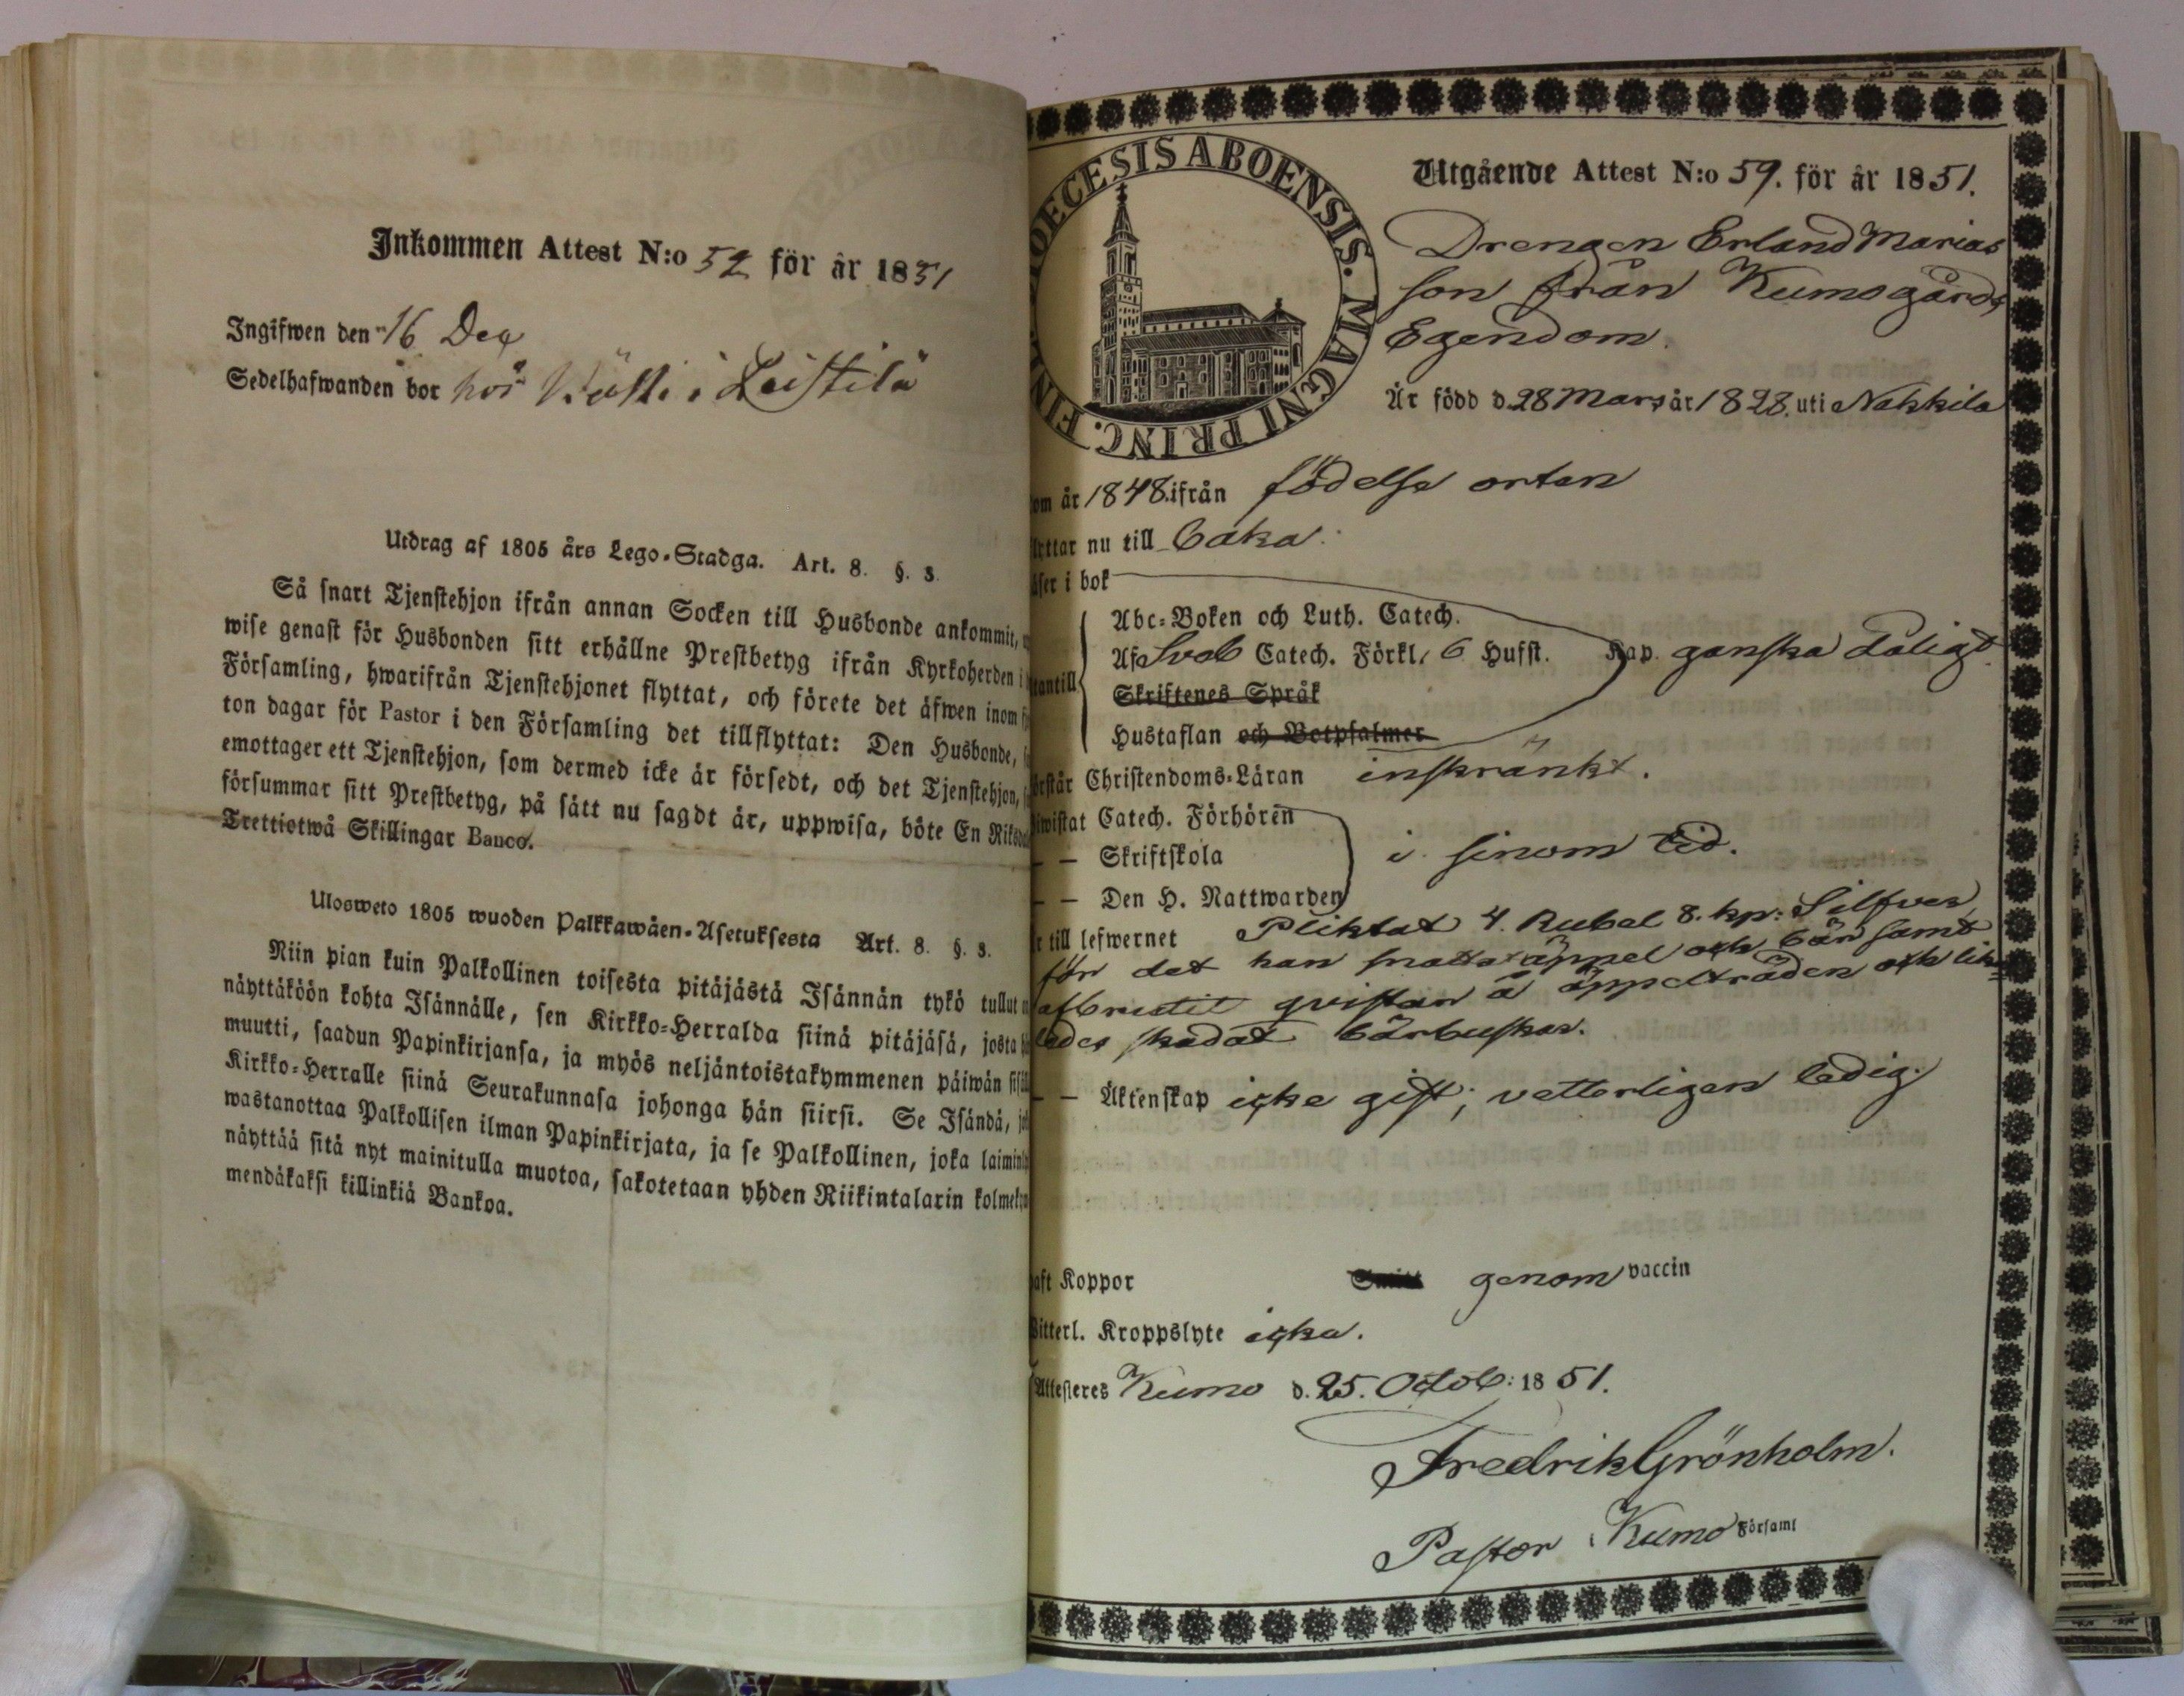 Inkommen Attest N:o 52 för år 1851
Ingifwen den 16 Dec
Sedelhafwanden bor hos i Leistilä
Utdrag af 1805 års Lego-Stadga. Art. 8. §. 3.
Så snart Tjenstehjon ifrån annan Socken till Husbonde ankommit,
wise genast för Husbonden sitt erhållne Prestbetyg ifrån Kyrkoherden i
Församling, hwarifrån Tjenstehjonet flyttat, och förete det äfwen inom
ton dagar för Pastor i den Församling det tillflyttat: Den Husbonde,
emottager ett Tjenstehjon, som dermed icke är försedt, och det Tjenstehjon,
försummar sitt Prestbetyg, på sätt nu sagdt är, uppwisa, böte En Riks
Trettiotwå Skillingar Banco.
Ulosweto 1805 wuoden Palkkawäen-Asetuksesta Art. 8. §. 3.
Niin pian kuin Palkollinen toisesta pitäjästä Isännän tykö tullut
näyttäköön kohta Isännälle, sen Kirkko-Herralda siinä pitäjäsä, josta
muutti, saadun Papinkirjansa, ja myös neljäntoistakymmenen päiwän sisäl
Kirkko-Herralle siinä Seurakunnasa johonga hän siirsi. Se Isändä,
wastanottaa Palkollisen ilman Papinkirjata, ja se Palkollinen, joka laimin
näyttää sitä nyt mainitulla muotoa, sakotetaan yhden Riikintalarin kolmeky
mendäkaksi killinkiä Bankoa.
DIOECESIS ABOENSIS. MAGNI PRINC. FINL.
Utgående Attest N:o 59. för år 1851.
Drengen Erland Marias
son från Kumogårds
Egendom.
Är född d. 28 Mars år 1828. uti Nakkila
om år 1848. ifrån födelse orten
lyttar nu till
äser i bok
Abc-Boken och Luth. Catech.
Af Sveb Catech. Förkl. 6 Hufst. Kap. ganska dåligt.
tantill
Skriftenes Språk
Hustaflan och Botpsalmer
örstår Christendoms-Läran inskränkt.
iwistat Catech. Förhören
— — Skriftskola i sinom tid.
— — Den H. Nattwarden
r till lefwernet Pliktat 4. Rubel 8. kp: Silfver,
för det han snattat äppel och bär samt
afbrutit qvistar å äppelträden och lik=
ledes skadat bärbuskar.
— — Äktenskap icke gift; vetterligen ledig.
aft Koppor genom vaccin
Witterl. Kroppslyte icke.
Attesteres Kumo d. 25. Octob: 1851.
Fredrik Grönholm.
Pastor i Kumo Församl